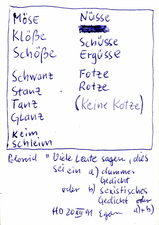 Möse
Klöße
Schöße
Schwanz
Stanz
Tanz
Glanz
Keim
Schleim
Nüsse
Schüsse
Ergüsse
Fotze
Rotze
(Keine Kotze)
"Viele Leute sagen, dies
sei ein a) dummes
Gedicht
oder b) sexistisches
Gedicht oder
a)+b)
HD 20